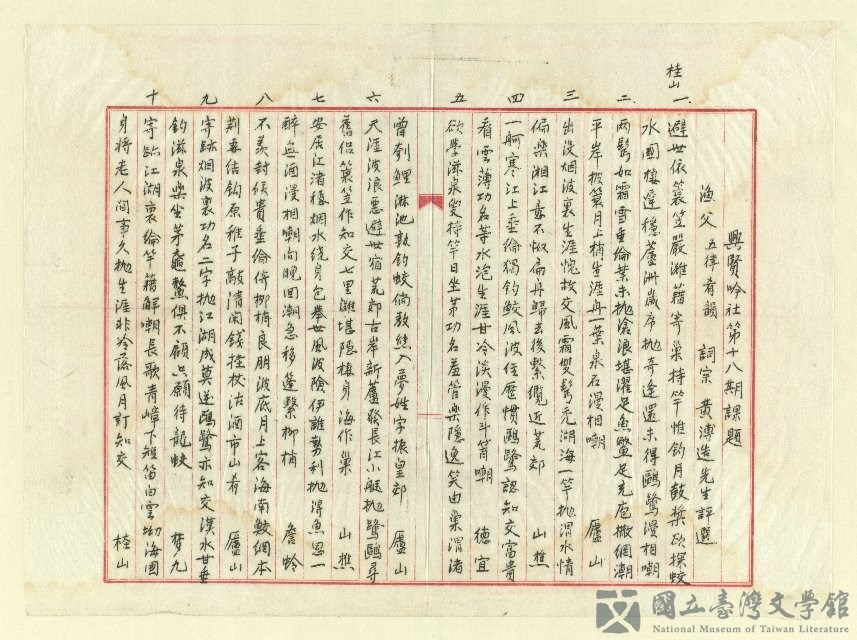 興賢吟社第十八期課題
漁父 五律肴韻 詞宗 黃溥造先生評選
桂山 一、避世依簑笠嚴灘藉寄巢持竿惟釣月鼓枻欲探蛟
水國棲遲穩蘆洲歲序拋奇逢還未得鷗鷺漫相嘲
二、兩鬢如霜雪垂綸業未拋滄浪堪濯足魚蟹足充庖撒網潮
平岸披簑月上梢生涯舟一葉泉石漫相嘲 廬山
三 出沒烟波裏生涯愧故交風霜雙鬢禿湖海一竿拋渭水情
偏樂湘江意不似扁舟歸去後繫纜近荒郊 山樵
四 一舸寒江上垂綸獨釣鮫風波任歷慣鷗鷺認知交富貴
看雲薄功名等水泡生涯甘冷淡漫作斗筲嘲 德宜
五 欲學滋泉叟持竿日坐茅功名羞管樂隱逸笑由巢渭渚
曾刳鯉淋池敢釣蛟倘教熊入夢姓字振皇郊 廬山
六 天涯波浪惡避世宿荒郊古岸新蘆發長江小艇拋鷺鷗尋
舊侶簑笠作知交七里灘堪隱棲身海作巢 山樵
七 安居江渚穩烟水繞身包舉世風波險伊誰勢利拋得魚思一
醉無酒漫相嘲向晚回潮急移篷繫柳梢 詹蛉
八 不羨封侯貴垂綸傍柳梢良朋波底月上客海南鮫網本
荊妻結鈎原稚子敲清閑錢挂杖沽酒市山肴 廬山
九 寄跡烟波裏功名二字拋江湖成莫逆鷗鷺亦知交渼水甘垂
釣滋泉樂坐茅龜鱉俱不顧只願待龍蛟 夢九
十 寄跡江湖裏綸竿藉解嘲長歌青嶂下短笛白雲坳海國
身將老人間事久拋生涯非冷落風月訂知交 桂山
國立臺灣文學館
National Museum of Taiwan Literature